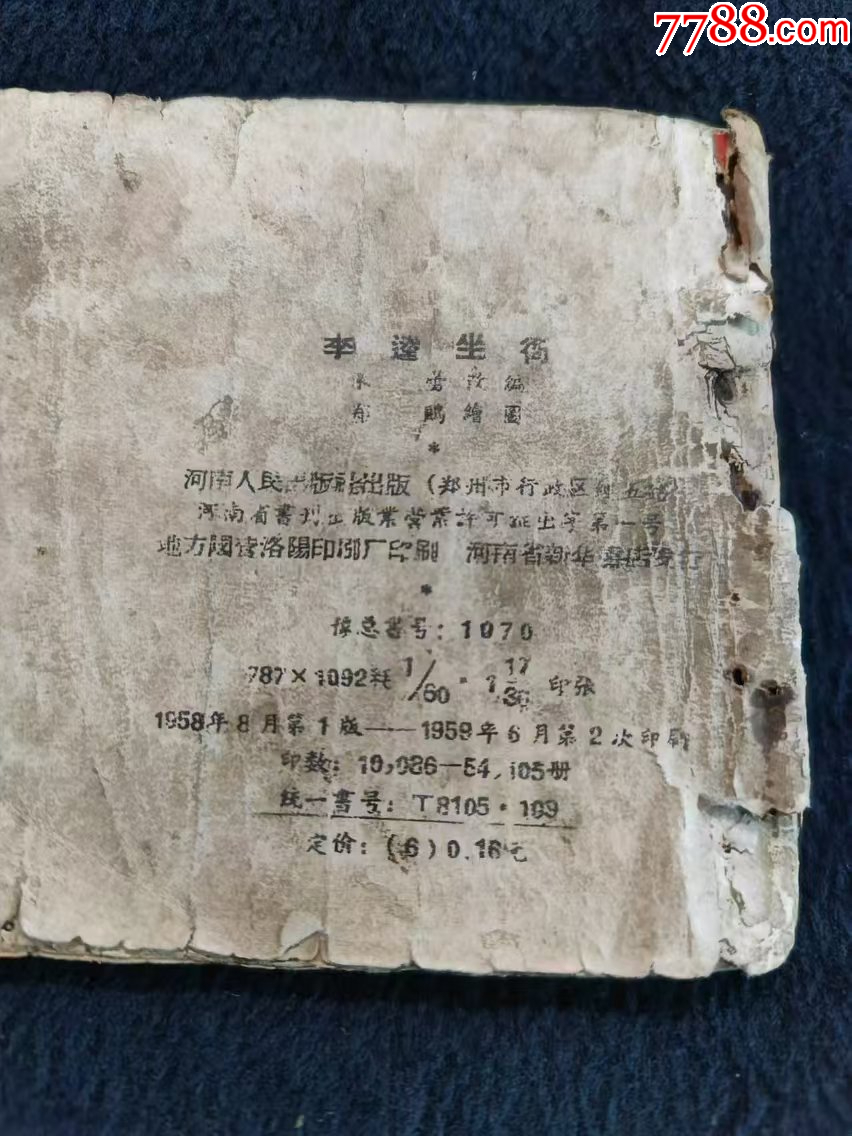 7788.com
李逵坐衙
編
鵰繪圖
*
河南人民出版社出版（郑州市行政区经五路）
河南省書刊出版業营業許可証出字第一号
地方國营洛陽印刷厂印刷 河南省新华書店发行
*
豫总書号：1070
787×1092耗 1/60・1 17/30 印张
1958年8月第1版——1959年6月第2次印刷
印数：10,086—54,105册
統一書号：T8105・109
定价：(6)0.16元